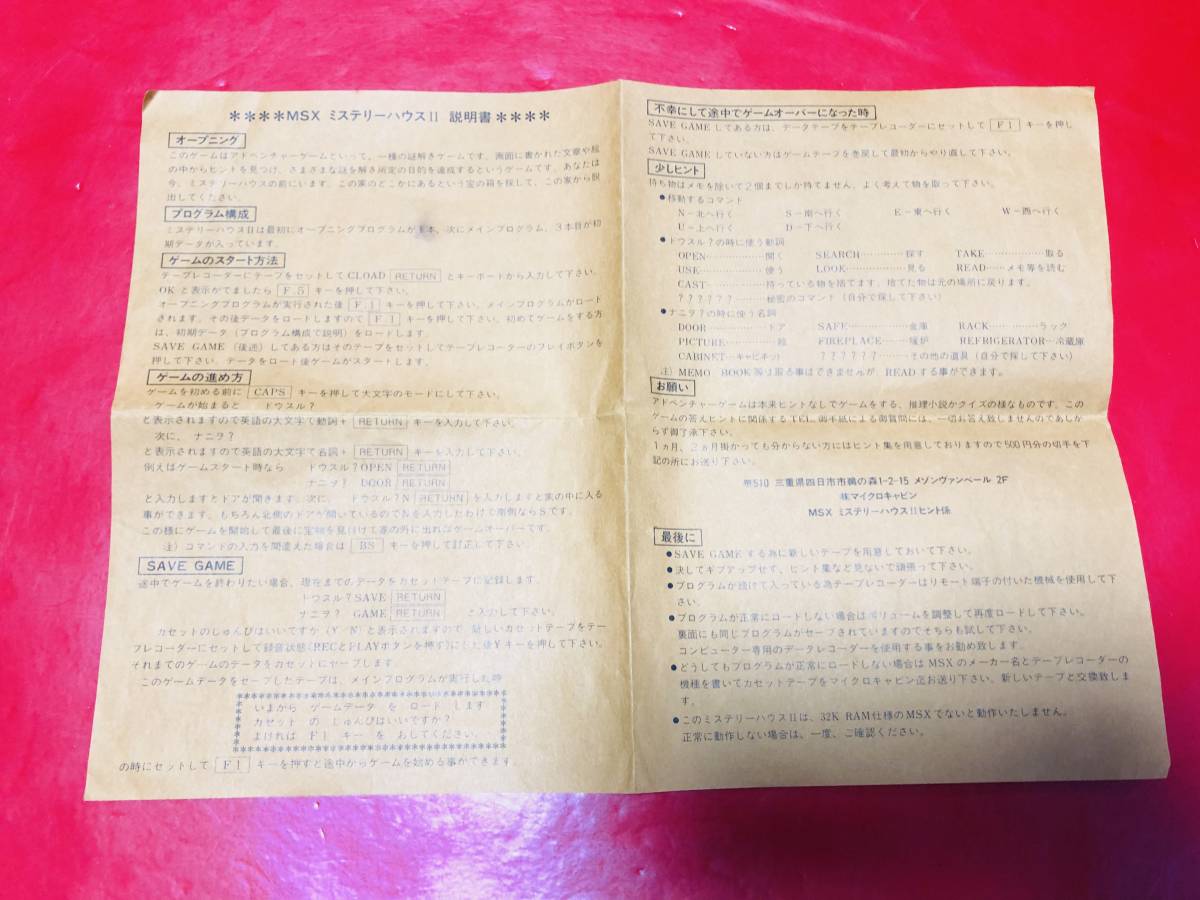 ****MSX ミステリーハウスII 説明書****
オープニング
このゲームはアドベンチャーゲームといって、一種の謎解きゲームです。画面に書かれた文章や絵
の中からヒントを見つけ、さまざまな謎を解き所定の目的を達成するというゲームです。あなたは
今、ミステリーハウスの前にいます。この家のどこかにあるという宝の箱を探して、この家から脱
出してください。
プログラム構成
ミステリーハウスIIは最初にオープニングプログラムが1本、次にメインプログラム、3本目が初
期データが入っています。
ゲームのスタート方法
テープレコーダーにテープをセットしてCLOAD RETURN とキーボードから入力して下さい。
OKと表示がでましたら F.5 キーを押して下さい。
オープニングプログラムが実行された後 F.1 キーを押して下さい。メインプログラムがロード
されます。その後データをロードしますので F 1 キーを押して下さい。初めてゲームをする方
は、初期データ(プログラム構成で説明)をロードします。
SAVE GAME(後述)してある方はそのテープをセットしてテープレコーダーのプレイボタンを
押して下さい。データをロード後ゲームがスタートします。
ゲームの進め方
ゲームを始める前に CAPS キーを押して大文字のモードにして下さい。
ゲームが始まると ドウスル?
と表示されますので英語の大文字で動詞+ RETURN キーを入力して下さい。
次に、ナニヲ?
と表示されますので英語の大文字で名詞+ RETURN キーを入力して下さい。
例えばゲームスタート時なら ドウスル?OPEN RETURN
ナニヲ? DOOR RETURN
と入力しますとドアが開きます。次に、 ドウスル?N RETURN を入力しますと家の中に入る
事ができます。もちろん北側のドアが開いているのでNを入力したわけで南側ならSです。
この様にゲームを開始して最後に宝物を見付けて家の外に出ればゲームオーバーです。
注)コマンドの入力を間違えた場合は BS キーを押して訂正して下さい。
SAVE GAME
途中でゲームを終わりたい場合、現在までのデータをカセットテープに記録します。
ドウスル?SAVE RETURN
ナニヲ? GAME RETURN と入力して下さい。
カセットのじゅんびはいいですか(Y/N)と表示されますので、新しいカセットテープをテー
プレコーダーにセットして録音状態(RECとPLAYボタンを押す)にした後Yキーを押して下さい。
それまでのゲームのデータをカセットにセーブします。
このゲームデータをセーブしたテープは、メインプログラムが実行した時
いまから ゲームデータ を ロード します
カセット の じゅんびはいいですか?
よければ F1 キー を おしてください。
の時にセットして F 1 キーを押すと途中からゲームを始める事ができます。
不幸にして途中でゲームオーバーになった時
SAVE GAMEしてある方は、データテープをテープレコーダーにセットして F 1 キーを押し
て下さい。
SAVE GAMEしていない方はゲームテープを巻戻して最初からやり直して下さい。
少しヒント
持ち物はメモを除いて2個までしか持てません。よく考えて物を取って下さい。
●移動するコマンド
N-北へ行く S-南へ行く E-東へ行く W-西へ行く
U-上へ行く D-下へ行く
●ドウスル?の時に使う動詞
OPEN…………開く SEARCH…………探す TAKE…………取る
USE…………使う LOOK…………見る READ……メモ等を読む
CAST…………持っている物を捨てます。捨てた物は元の場所に戻ります。
??????……秘密のコマンド(自分で探して下さい)
●ナニヲ?の時に使う名詞
DOOR…………ドア SAFE…………金庫 RACK…………ラック
PICTURE…………絵 FIREPLACE……暖炉 REFRIGERATOR…冷蔵庫
CABINET…キャビネット ??????……その他の道具(自分で探して下さい)
注)MEMO BOOK等は取る事はできませんが、READする事ができます。
お願い
アドベンチャーゲームは本来ヒントなしでゲームをする、推理小説かクイズの様なものです。この
ゲームの答えヒントに関係するTEL、御手紙による御質問には、一切お答え致しませんのであしか
らず御了承下さい。
1ヵ月、2ヵ月掛かっても分からない方にはヒント集を用意しておりますので500円分の切手を下
記の所にお送り下さい。
〒510 三重県四日市市鵜の森1-2-15 メゾンヴァンベール 2F
㈱マイクロキャビン
MSX ミステリーハウスIIヒント係
最後に
●SAVE GAMEする為に新しいテープを用意しておいて下さい。
●決してギブアップせず、ヒント集など見ないで頑張って下さい。
●プログラムが続けて入っている為テープレコーダーはリモート端子の付いた機械を使用して下
さい。
●プログラムが正常にロードしない場合はボリュームを調整して再度ロードして下さい。
裏面にも同じプログラムがセーブされていますのでそちらも試して下さい。
コンピューター専用のデータレコーダーを使用する事をお勧め致します。
●どうしてもプログラムが正常にロードしない場合はMSXのメーカー名とテープレコーダーの
機種を書いてカセットテープをマイクロキャビン迄お送り下さい。新しいテープと交換致しま
す。
●このミステリーハウスIIは、32K RAM仕様のMSXでないと動作いたしません。
正常に動作しない場合は、一度、ご確認ください。